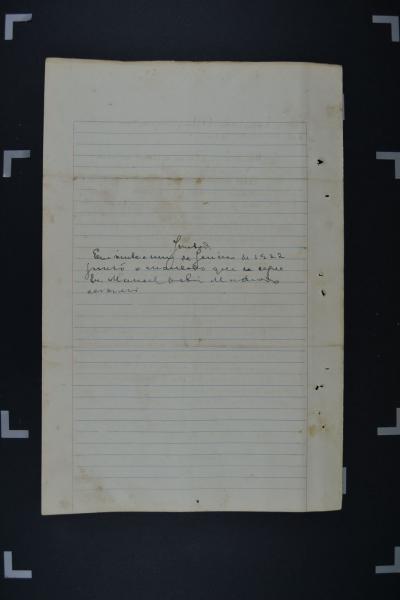 Juntada
Em vinte e um de Janeiro de 1922
junto o mandado que se segue
Eu Manoel
escrivão